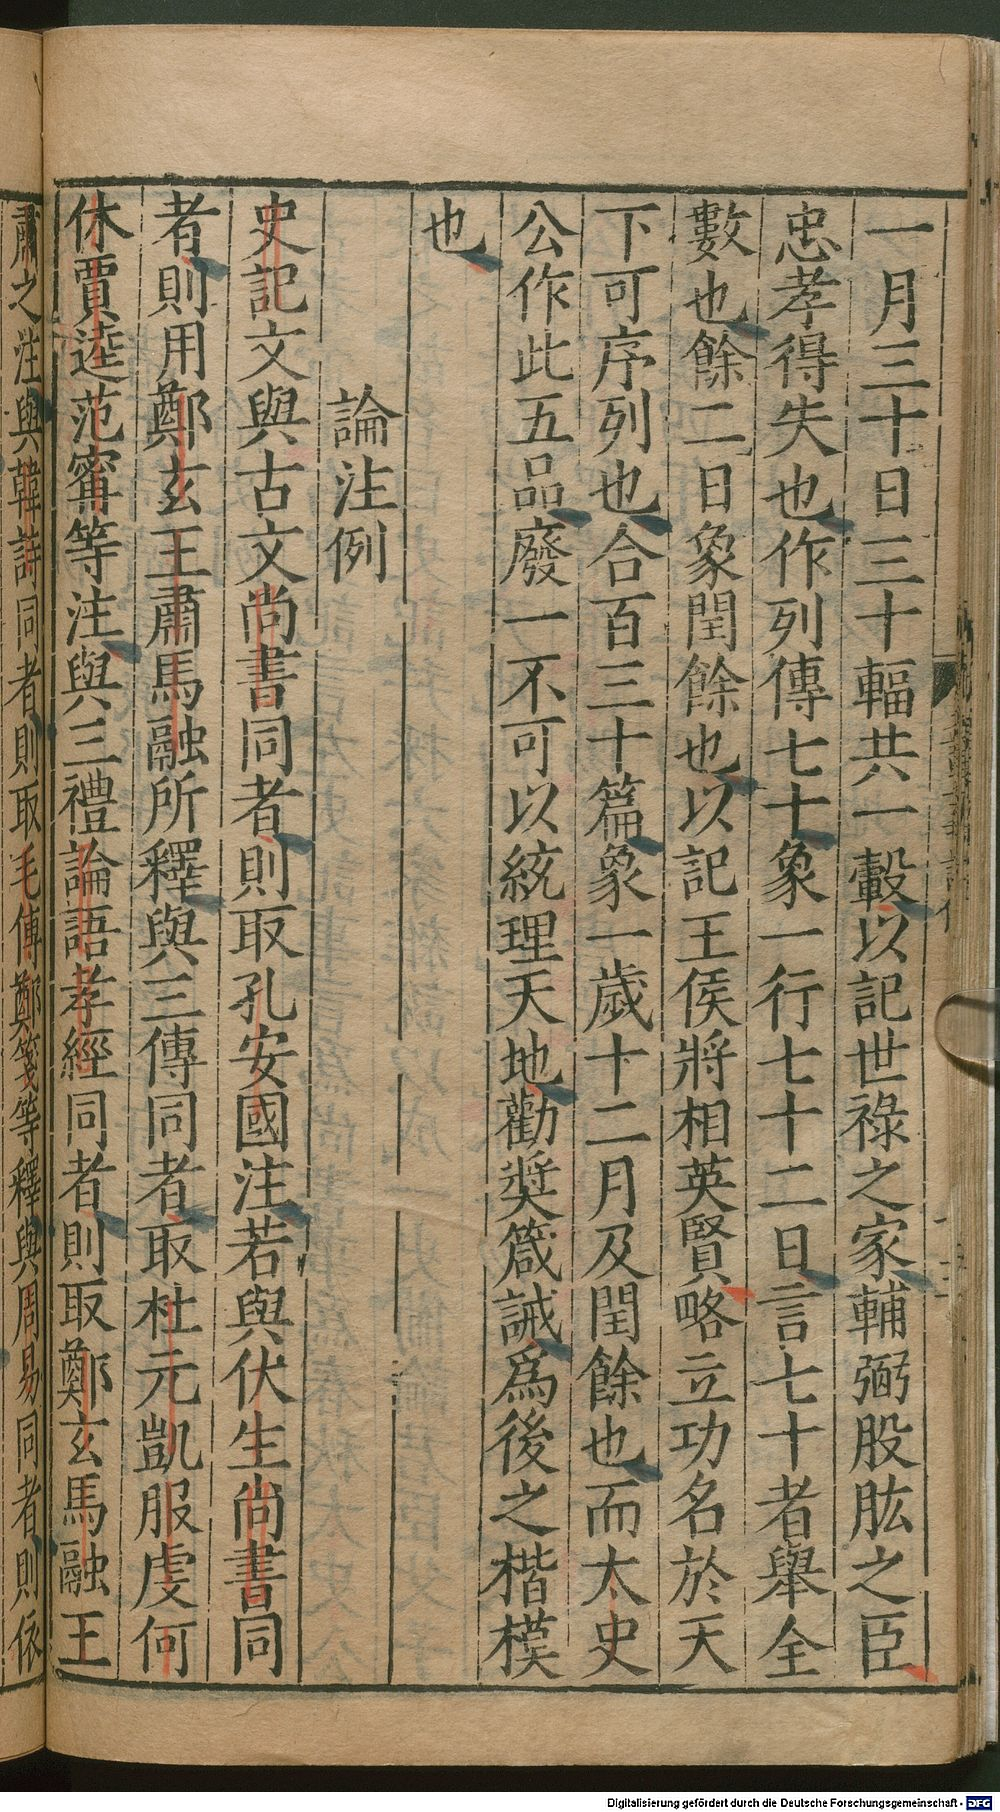 一月三十日三十輻共一轂以記世祿之家輔弼股肱之臣
忠孝得失也作列傳七十象一行七十二日言七十者舉全
數也餘二日象閏餘也以記王侯將相英賢略立功名於天
下可序列也合百三十篇象一歲十二月及閏餘也而太史
公作此五品廢一不可以統理天地勸奬箴誡爲後之楷模
也
論注例
史記文與古文尚書同者則取孔安國注若與伏生尚書同
者則用鄭玄王肅馬融所釋與三傳同者取杜元凱服虔何
休賈逵范甯等注與三禮論語孝經同者則取鄭玄馬融王
肅之注與韓詩同者則取毛傳鄭箋等釋與周易同者則依
Digitalisierung gefördert durch die Deutsche Forschungsgemeinschaft - DFG